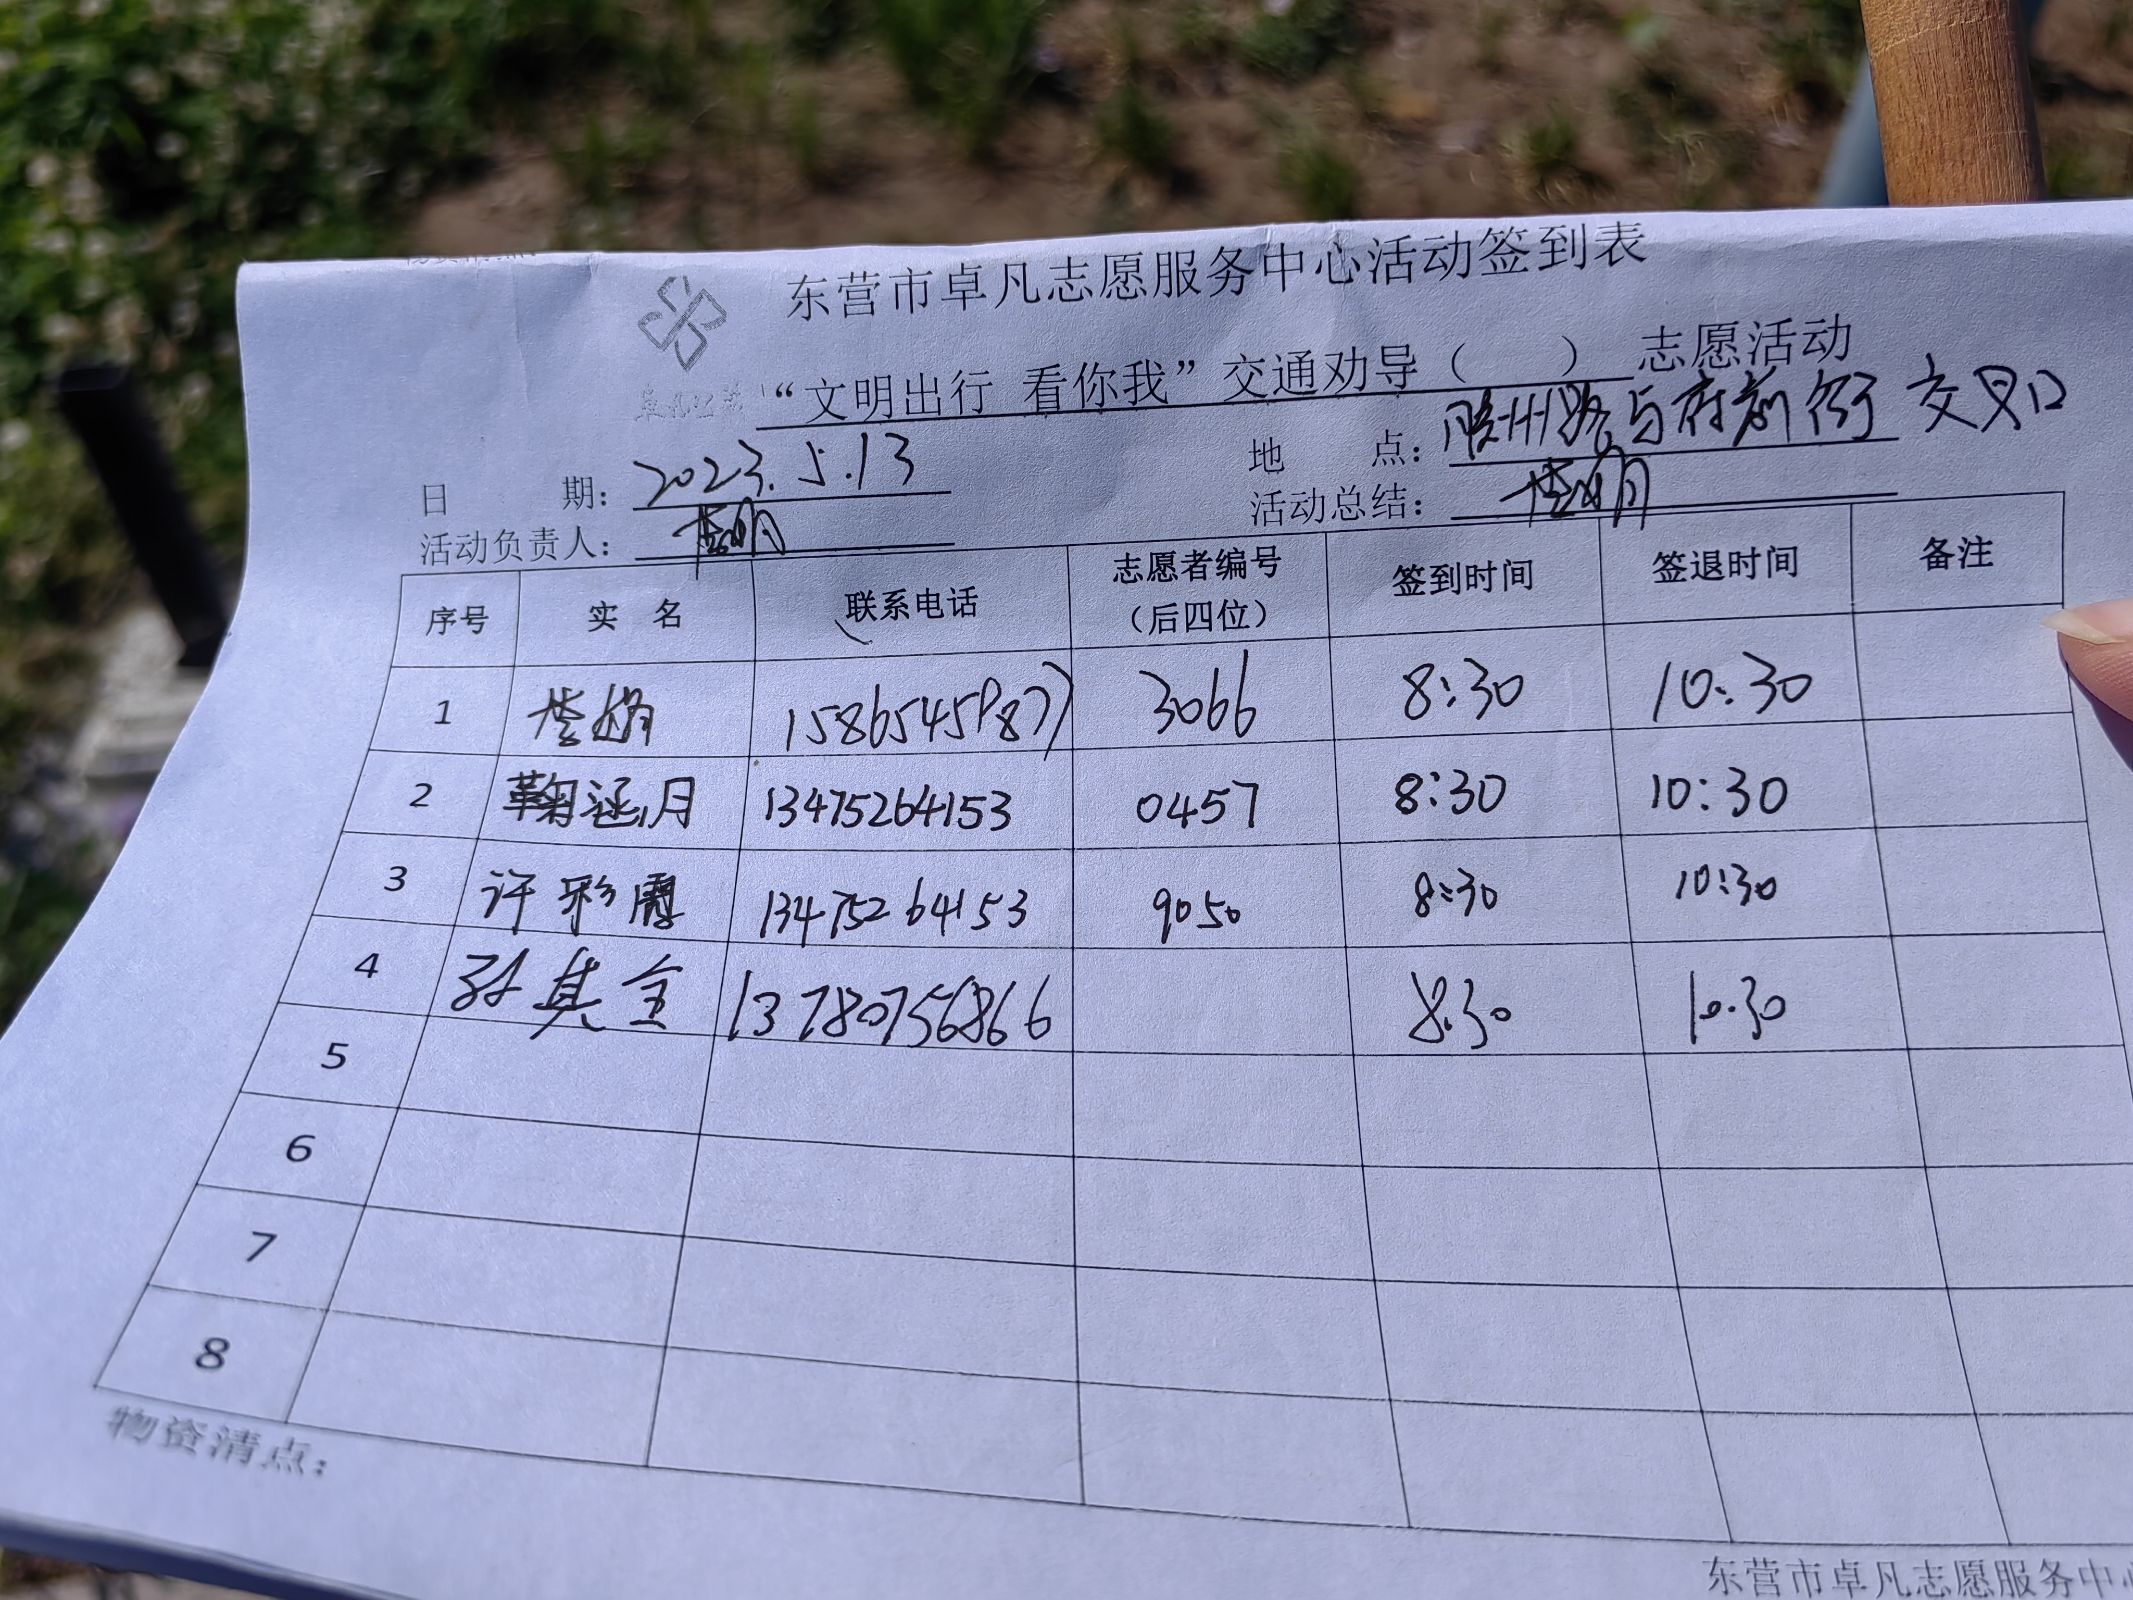 东营市卓凡志愿服务中心活动签到表
“文明出行 看你我”交通劝导（ ）志愿活动
日 期：2023.5.13 地 点：胶州路与府前街交叉口
活动负责人： 活动总结：
序号 实 名 联系电话 志愿者编号（后四位） 签到时间 签退时间 备注
1 15865459877 3066 8:30 10:30
2 鞠涵月 13475264153 0457 8:30 10:30
3 许彩霞 13475264153 9050 8:30 10:30
4 孙其全 13780756866 8:30 10:30
5
6
7
8
物资清点：
东营市卓凡志愿服务中心